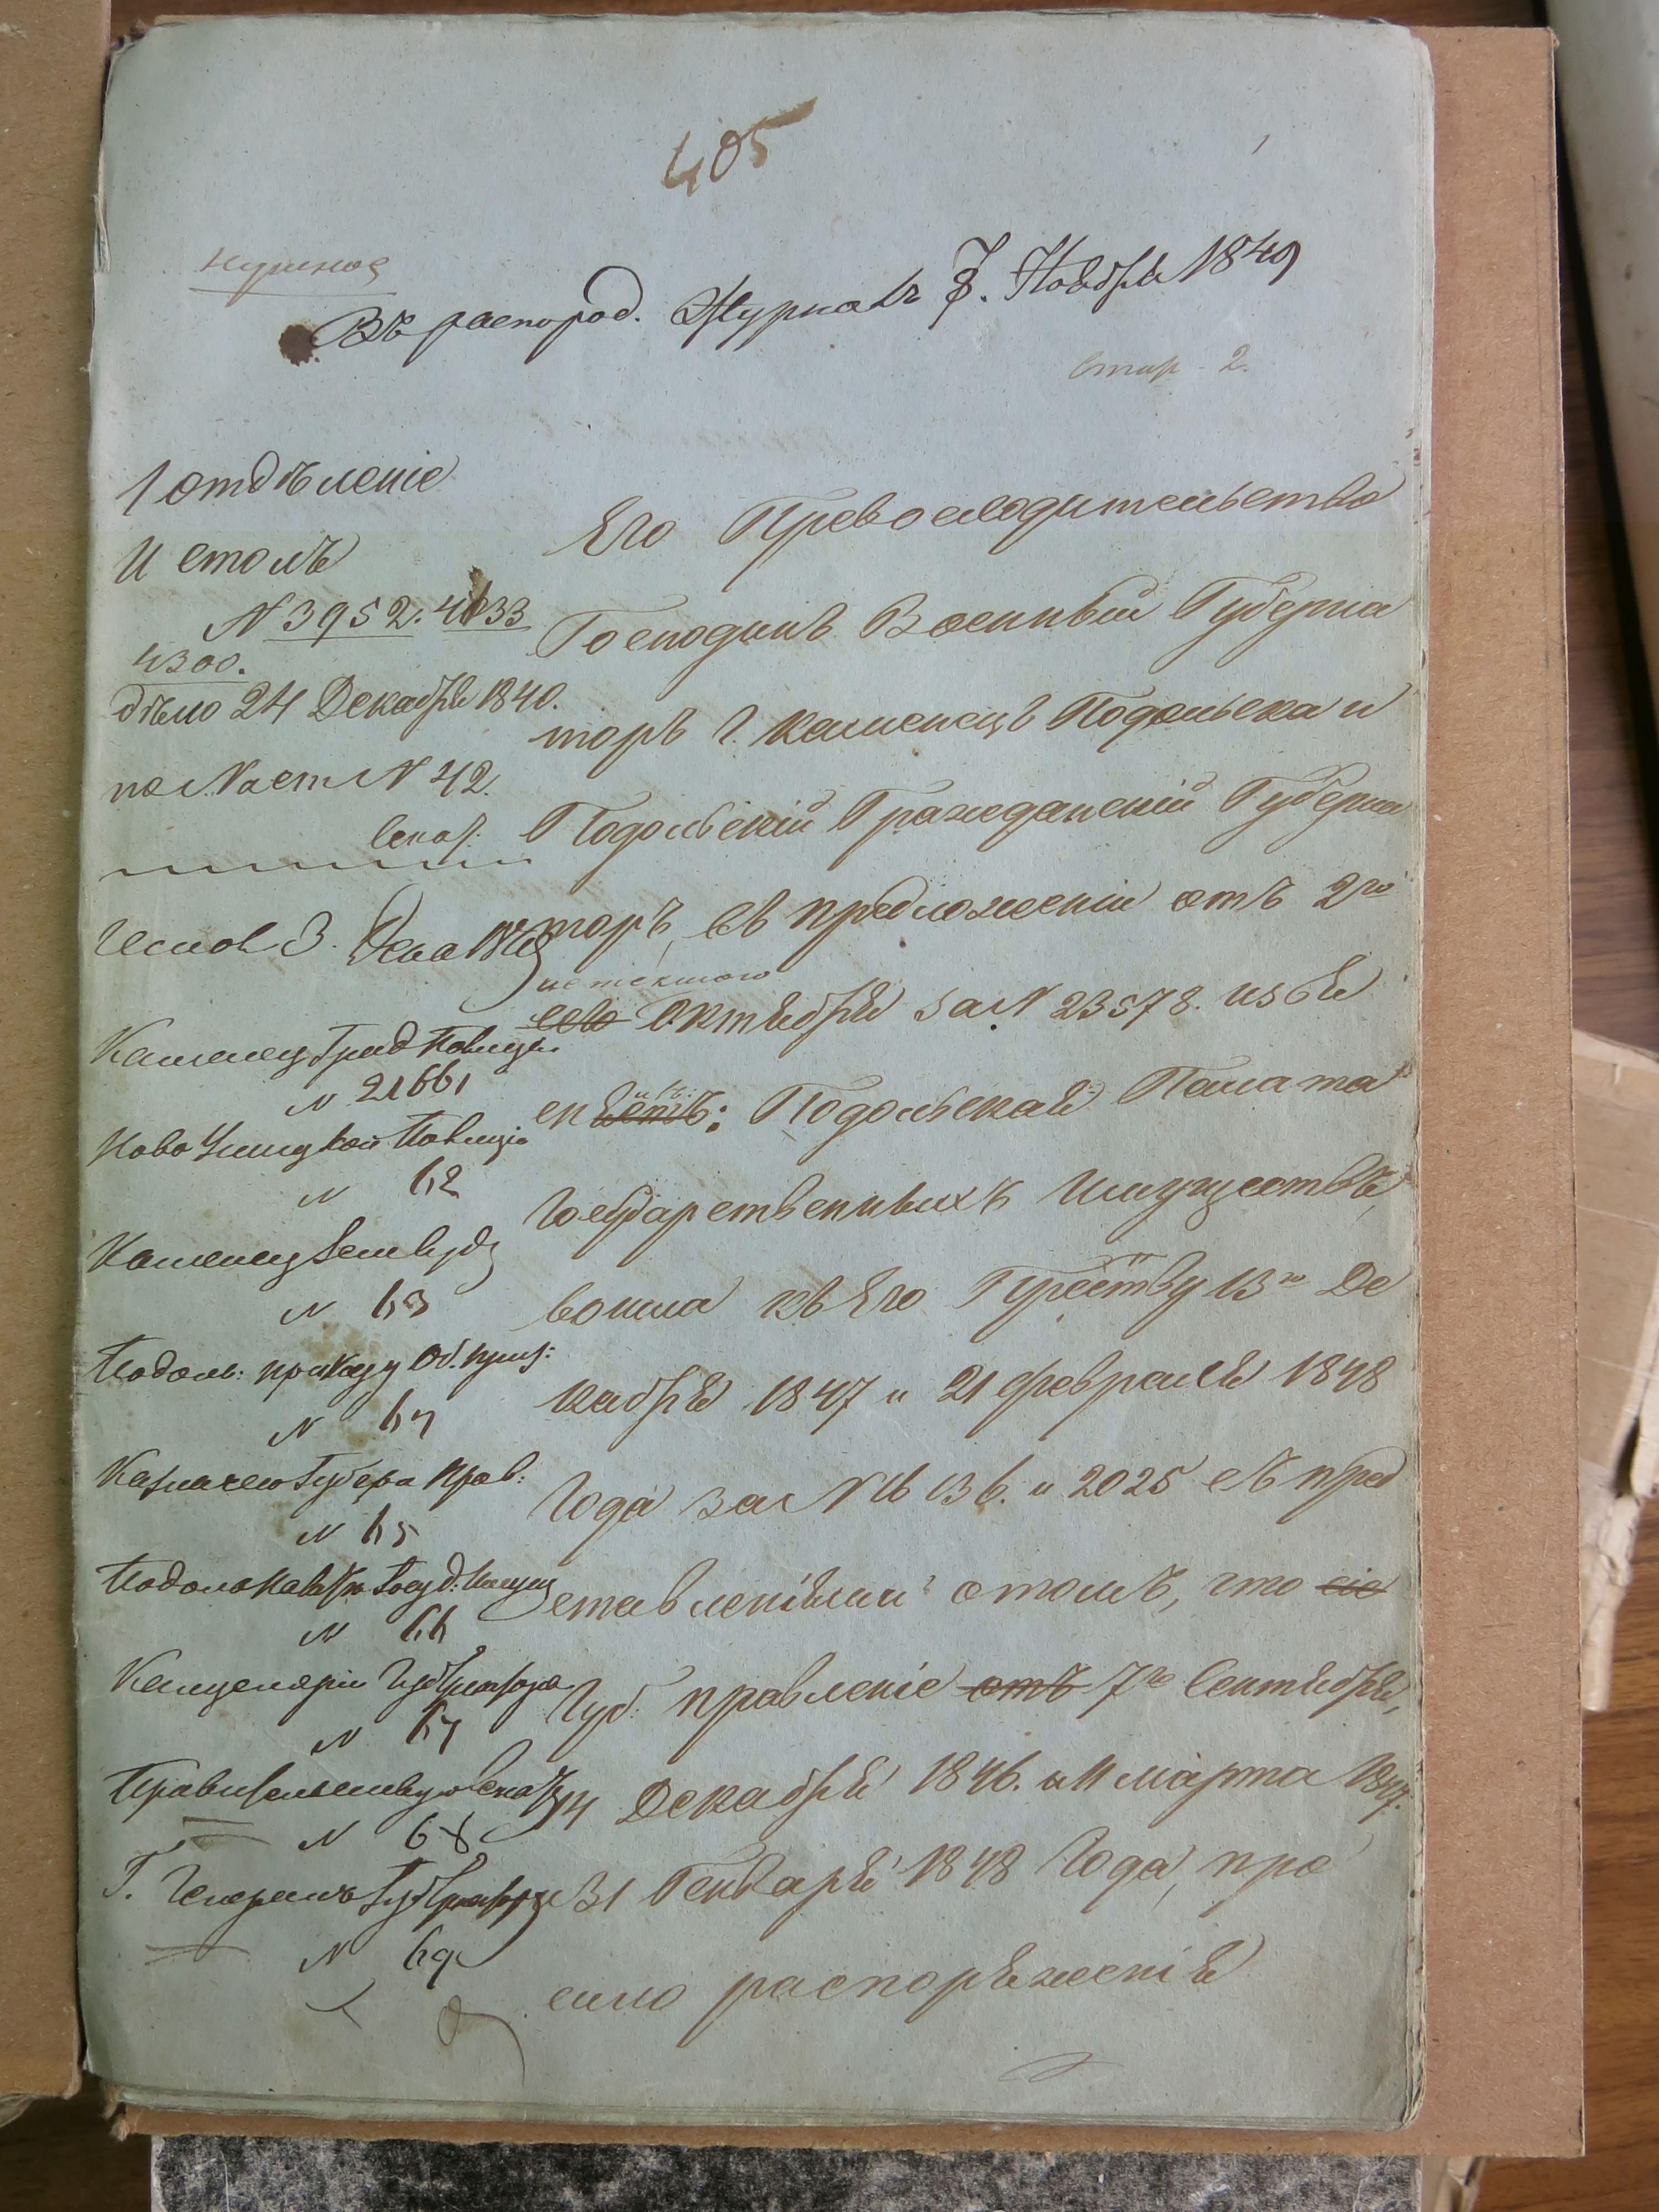 405
нужное
Въ распоряд. Журналъ 7. Ноября 1849
Стар. 2.
1 отдѣленіе
и столъ
№ 3952. 4033
4300.
дѣло 24 Декабря 1840.
по Наст № 42.
Секр:
Исполн 3. Дека 1849
Каменец Град Полиціи
№ 21661
Ново Ушицкой Полиціи
№ 62
Каменец Зем Суду
№ 63
Подоль: приказу Об. призр:
№ 64
Казначею Губерн Прав:
№ 65
Подольской Палатѣ Госуд: Имущ
№ 66
Канцеляріи Губернатора
№ 67
№ 68
Г. Генералъ Губернатору
№ 69
Его Превосходительство
Господинъ Военный Губерна
торъ г. Каменецъ Подольска и
Подольскій Гражданскій Губерна
торъ, въ предложеніи отъ 2го
истекшаго
сего Октября за № 23578. изъя
снилъ: Подольская Палата
Государственныхъ Имуществъ,
вошла къ Его Пр-ству 13го Де
кабря 1847 и 21 февраля 1848
Года за № 16136. и 2025 съ пред
ставленіями о томъ, что сіе
Губ: правленіе отъ 7го Сентября,
14 Декабря 1846. и 11 марта 1847.
и 31 Генваря 1848 Года, про
сило распоряженія